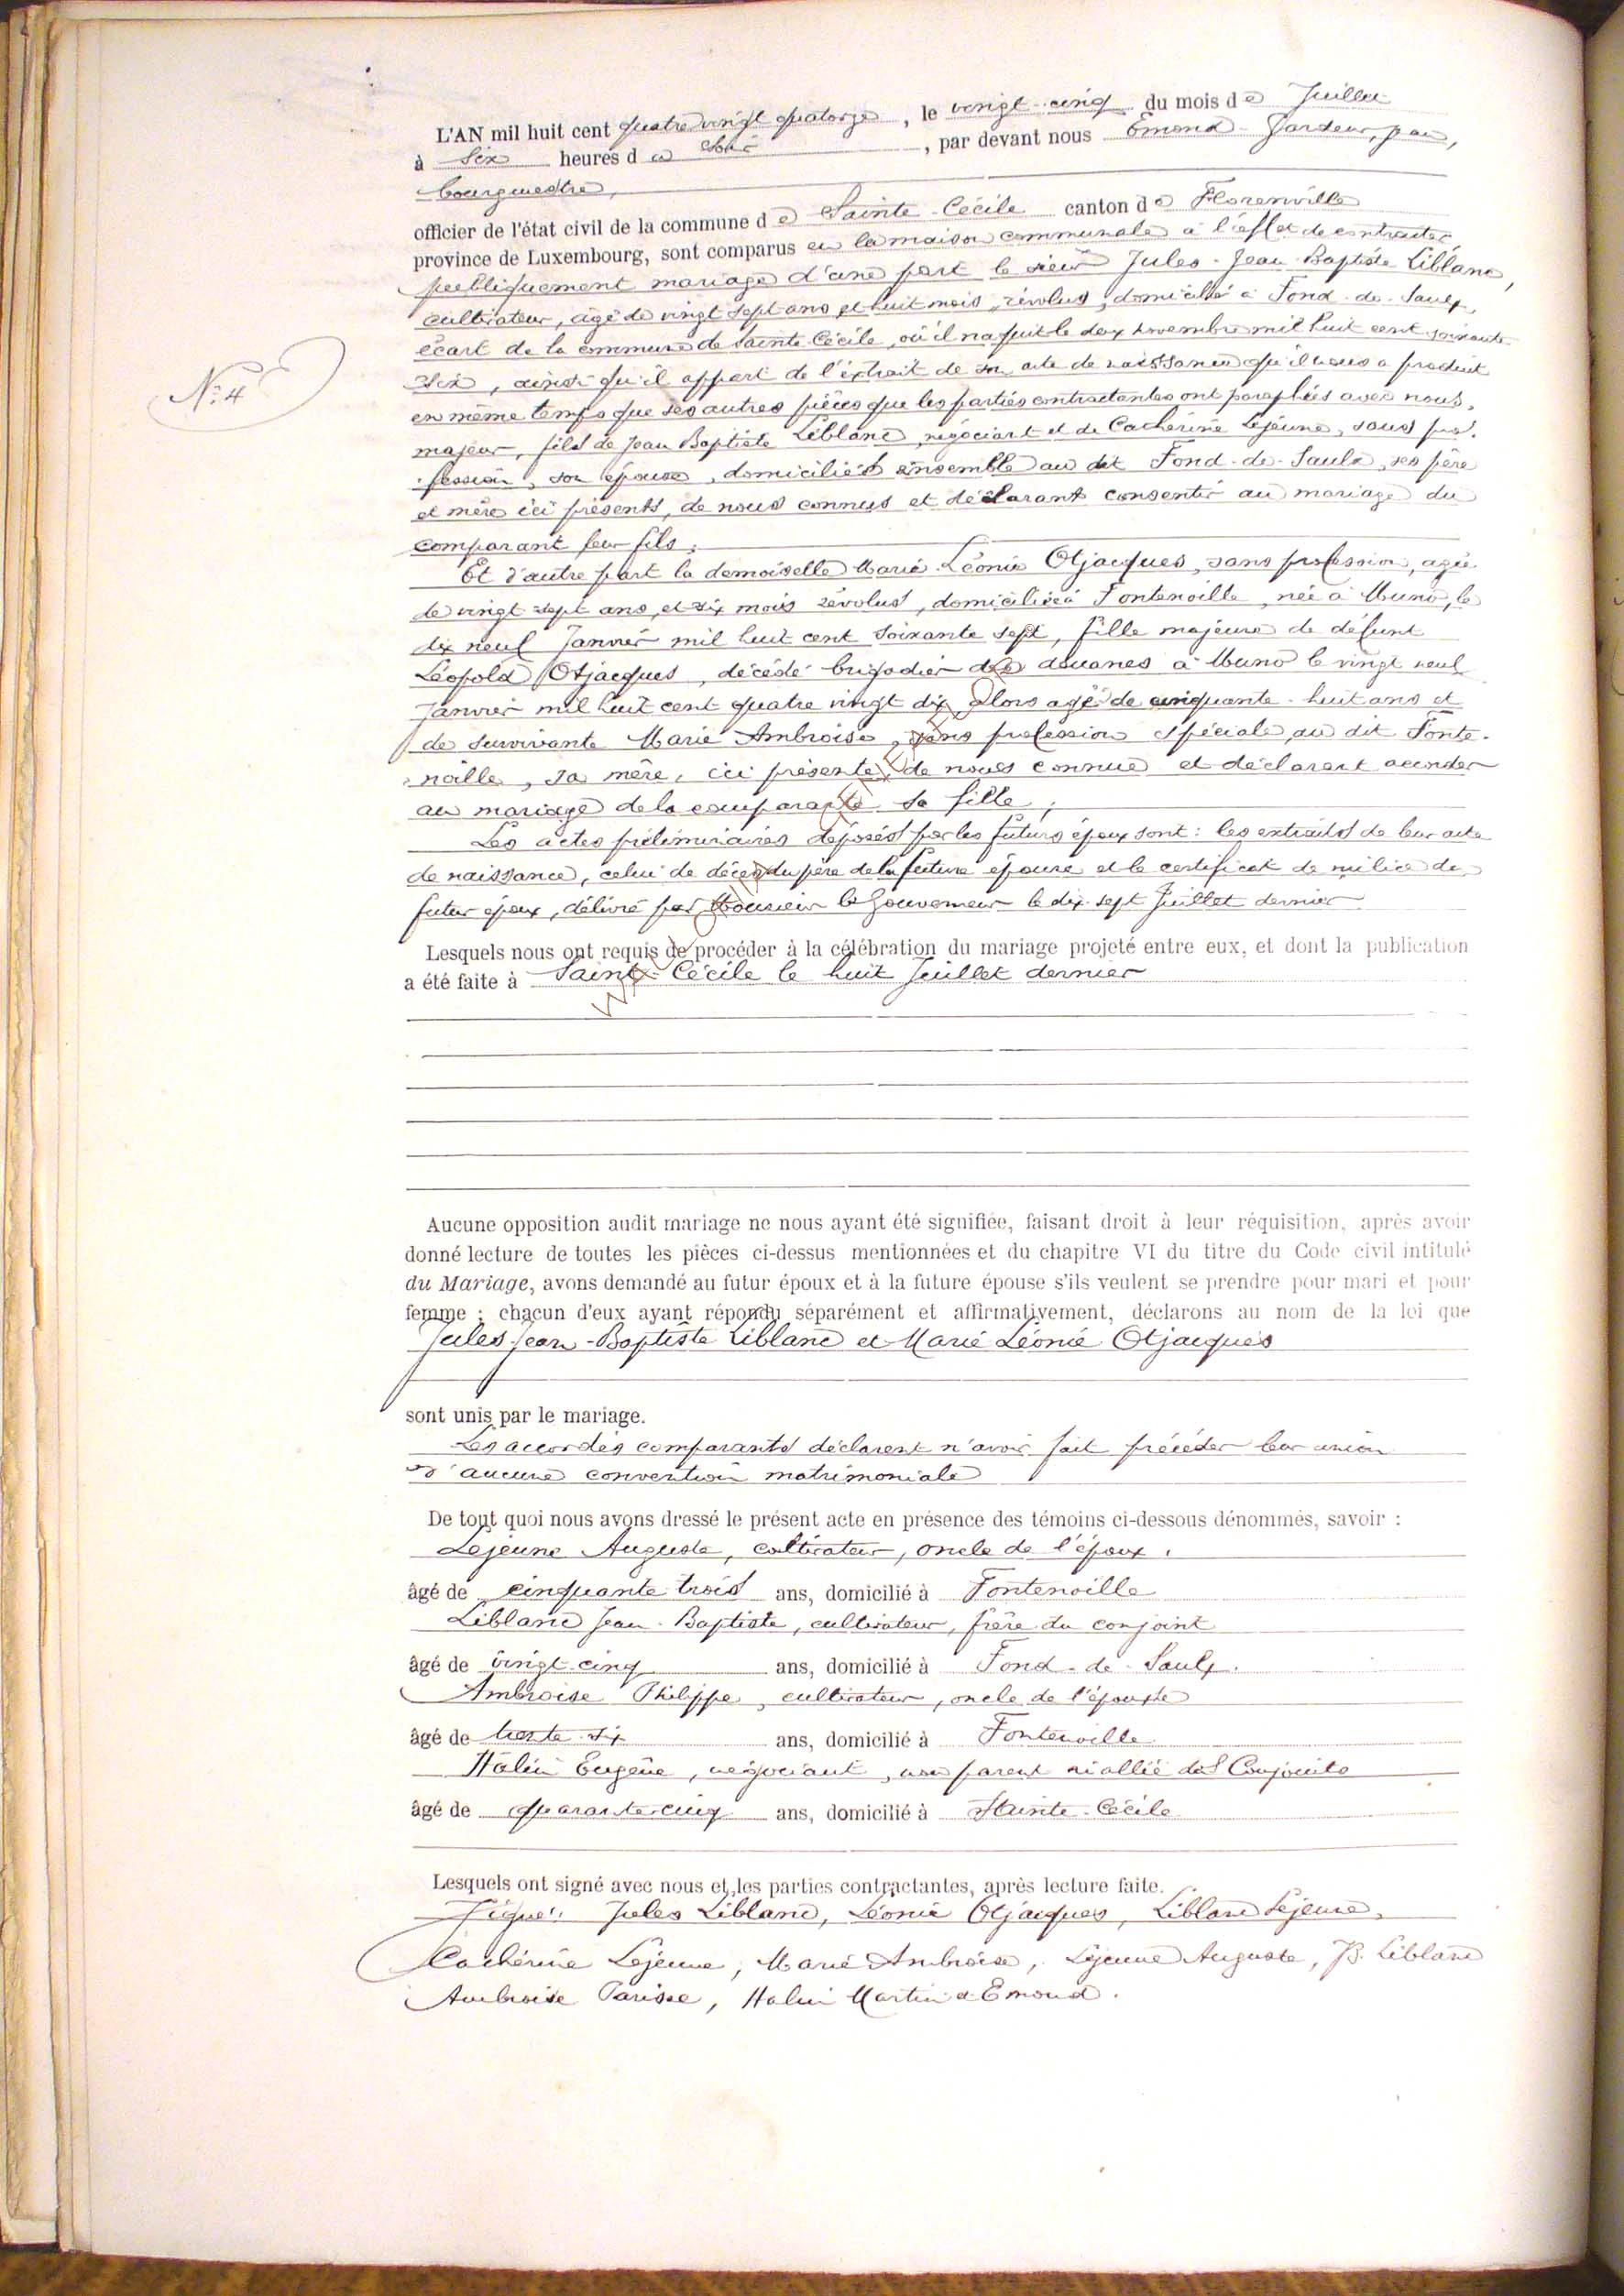 L'AN mil huit cent quatre vingt quatorze, le vingt-cinq du mois de Juillet
à six heures du soir, par devant nous Emond
bourgmestre,
N° 4
officier de l'état civil de la commune de Sainte-Cécile canton de Florenville
province de Luxembourg, sont comparus en la maison communale à l'effet de contracter
publiquement mariage d'une part le sieur Jules-Jean-Baptiste Liblanc,
cultivateur, âgé de vingt sept ans et huit mois révolus, domicilié à Fond-de-Saulx,
écart de la commune de Sainte-Cécile, où il naquit le deux novembre mil huit cent soixante
six, ainsi qu'il appert de l'extrait de son acte de naissance qu'il nous a produit
en même temps que ses autres pièces que les parties contractantes ont paraphées avec nous,
majeur, fils de Jean Baptiste Liblanc, négociant et de Cathérine Lejeune, sans pro-
fession, son épouse, domiciliés ensemble au dit Fond-de-Saulx, ses père
et mère ici présents, de nous connus et déclarant consentir au mariage du
comparant leur fils;
Et d'autre part la demoiselle Marie-Léonie Otjacques, sans profession, agée
de vingt sept ans et six mois révolus, domiciliée à Fontenoille, née à Muno, le
dix neuf Janvier mil huit cent soixante sept, fille majeure de défunt
Léopold Otjacques, décédé brigadier des douanes à Muno le vingt neuf
Janvier mil huit cent quatre vingt dix, alors agé de cinquante-huit ans et
de survivante Marie Ambroise, sans profession spéciale, au dit Fonte-
noille, sa mère, ici présente, de nous connue et déclarant accorder
au mariage de la comparante sa fille;
Les actes préliminaires déposés par les futurs époux sont: les extraits de leur acte
de naissance, celui de décès du père de la future épouse et le certificat de milice du
futur époux, délivré par Monsieur le Gouverneur le dix-sept Juillet dernier
Lesquels nous ont requis de procéder à la célébration du mariage projeté entre eux, et dont la publication
a été faite à Sainte-Cécile le huit Juillet dernier
Aucune opposition audit mariage ne nous ayant été signifiée, faisant droit à leur réquisition, après avoir
donné lecture de toutes les pièces ci-dessus mentionnées et du chapitre VI du titre du Code civil intitulé
du Mariage, avons demandé au futur époux et à la future épouse s'ils veulent se prendre pour mari et pour
femme ; chacun d'eux ayant répondu séparément et affirmativement, déclarons au nom de la loi que
Jules-Jean-Baptiste Liblanc et Marie Léonie Otjacques
sont unis par le mariage.
Les accordés comparants déclarent n'avoir fait précéder leur union
d'aucune convention matrimoniale
De tout quoi nous avons dressé le présent acte en présence des témoins ci-dessous dénommés, savoir :
Lejeune Auguste, cultivateur, oncle de l'époux,
âgé de cinquante trois ans, domicilié à Fontenoille
Liblanc Jean-Baptiste, cultivateur, frère du conjoint
âgé de vingt-cinq ans, domicilié à Fond-de-Saulx.
Ambroise Philippe, cultivateur, oncle de l'épouse
âgé de trente-six ans, domicilié à Fontenoille
Halin Eugène, négociant, non parent ni allié des Conjoints
âgé de quarante-cinq ans, domicilié à Sainte-Cécile
Lesquels ont signé avec nous et les parties contractantes, après lecture faite.
Signé: Jules Liblanc, Léonie Otjacques, Liblanc Lejeune,
Cathérine Lejeune, Marie Ambroise, Lejeune Auguste, JB. Liblanc
Ambroise Parisse, Halin Martin & Emond.